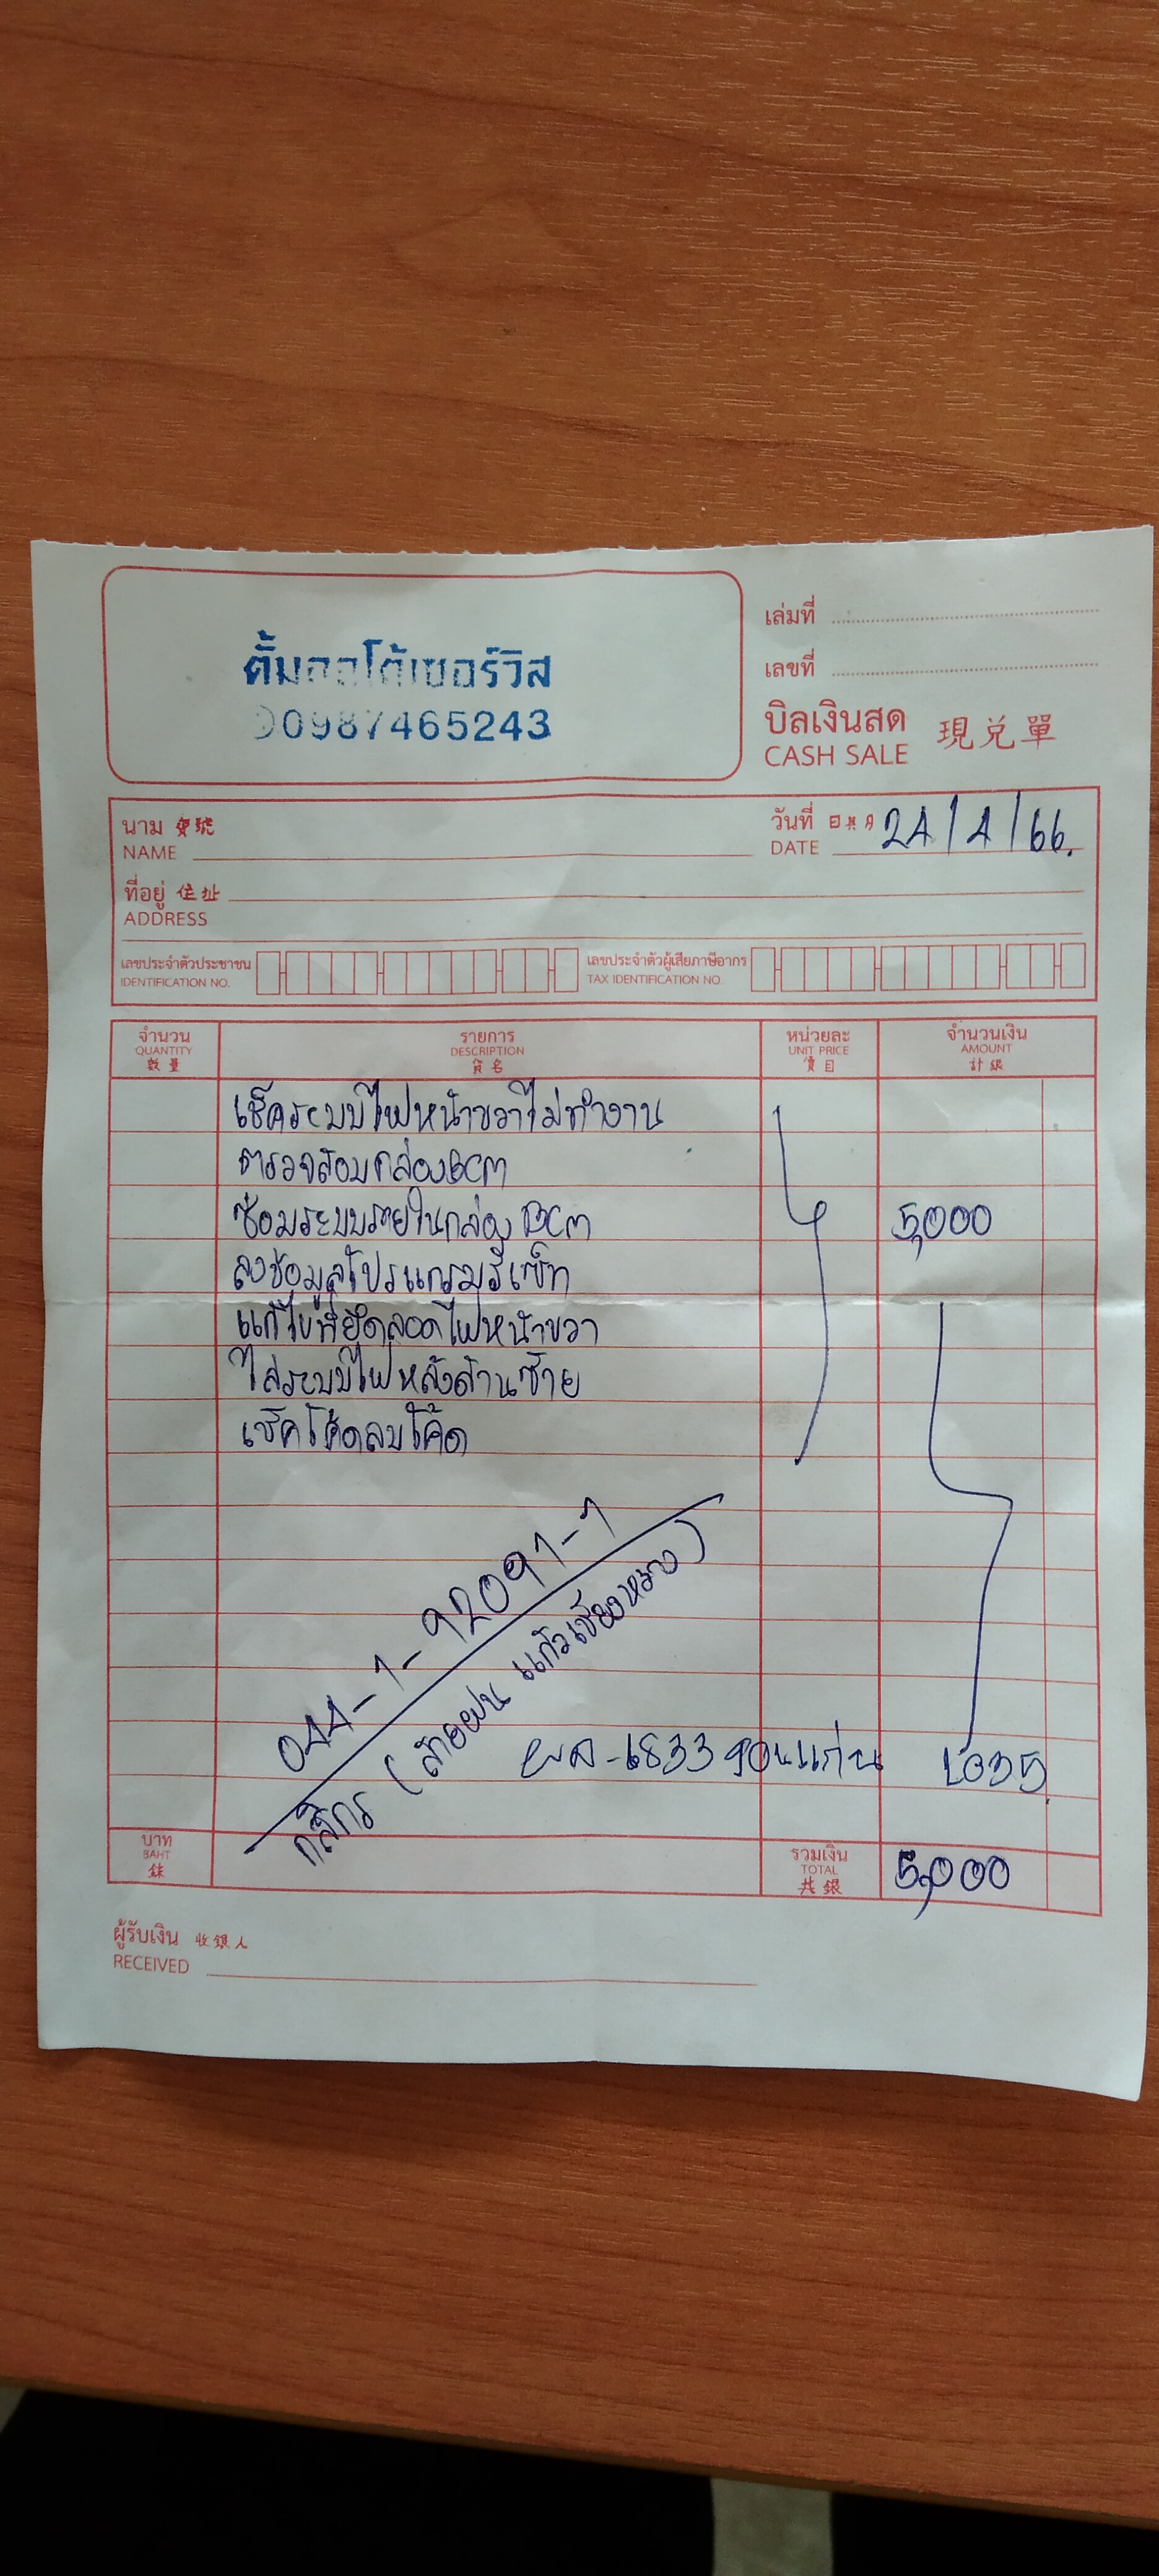 ตั้มออโต้เซอร์วิส
0987465243
เล่มที่
เลขที่
บิลเงินสด 現兑單
CASH SALE
นาม 寶號
NAME
วันที่ 日期 24/4/66.
DATE
ที่อยู่ 住址
ADDRESS
เลขประจำตัวประชาชน
IDENTIFICATION NO.
เลขประจำตัวผู้เสียภาษีอากร
TAX IDENTIFICATION NO.
จำนวน รายการ หน่วยละ จำนวนเงิน
QUANTITY DESCRIPTION UNIT PRICE AMOUNT
數量 貨名 價目 計銀
เช็คระบบไฟหน้าขวาไม่ทำงาน
ตรวจสอบกล่องBCM
ซ่อมระบบภายในกล่อง BCM 5,000
ลงข้อมูลโปรแกรมรีเซ็ท
แก้ไขที่ยึดหลอดไฟหน้าขวา
ไล่ระบบไฟหลังด้านซ้าย
เช็คโค้ดลบโค้ด
044-1-92091-1
กสิกร (สายฝน แก้วเชียงหวาง)
6833 ขอนแก่น
บาท
BAHT
銖
รวมเงิน 5,000
TOTAL
共銀
ผู้รับเงิน 收銀人
RECEIVED